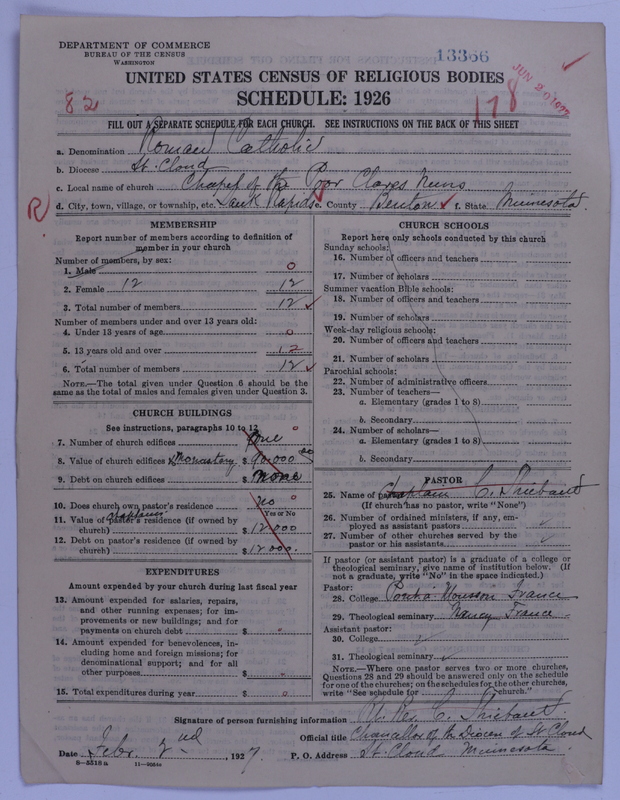 DEPARTMENT OF COMMERCE
BUREAU OF THE CENSUS
WASHINGTON
13366
JUN 20 1927
UNITED STATES CENSUS OF RELIGIOUS BODIES
SCHEDULE: 1926
82
178
FILL OUT A SEPARATE SCHEDULE FOR EACH CHURCH. SEE INSTRUCTIONS ON THE BACK OF THIS SHEET
a. Denomination Roman Catholic
b. Diocese St. Cloud
c. Local name of church Chapel of the Poor Clares Nuns
d. City, town, village, or township, etc. Sauk Rapids e. County Benton f. State Minnesota.
R
MEMBERSHIP
Report number of members according to definition of
member in your church
Number of members, by sex:
1. Male 0
2. Female 12 12
3. Total number of members 12
Number of members under and over 13 years old:
4. Under 13 years of age 0
5. 13 years old and over 12
6. Total number of members 12
NOTE.—The total given under Question 6 should be the
same as the total of males and females given under Question 3.
CHURCH BUILDINGS
See instructions, paragraphs 10 to 12 0
7. Number of church edifices One
8. Value of church edifices Monastery $ 90,000 00
9. Debt on church edifices $ None
10. Does church own pastor's residence no 0
Yes or No
chaplains
11. Value of pastor's residence (if owned by
church) $ 12000
12. Debt on pastor's residence (if owned by
church) $ 12000.
EXPENDITURES
Amount expended by your church during last fiscal year
13. Amount expended for salaries, repairs,
and other running expenses; for im-
provements or new buildings; and for
payments on church debt $
14. Amount expended for benevolences, in-
cluding home and foreign missions; for
denominational support; and for all
other purposes $
15. Total expenditures during year $ 0
CHURCH SCHOOLS
Report here only schools conducted by this church
Sunday schools:
16. Number of officers and teachers
17. Number of scholars
Summer vacation Bible schools:
18. Number of officers and teachers
19. Number of scholars
Week-day religious schools:
20. Number of officers and teachers
21. Number of scholars
Parochial schools:
22. Number of administrative officers
23. Number of teachers—
a. Elementary (grades 1 to 8)
b. Secondary
24. Number of scholars—
a. Elementary (grades 1 to 8)
b. Secondary
PASTOR
25. Name of pastor Chaplain C. Thiebaut
(If church has no pastor, write "None")
26. Number of ordained ministers, if any, em-
ployed as assistant pastors
27. Number of other churches served by the
pastor or his assistants
If pastor (or assistant pastor) is a graduate of a college or
theological seminary, give name of institution below. (If
not a graduate, write "No" in the space indicated.)
Pastor:
28. College Mousson France
29. Theological seminary Nancy France
Assistant pastor:
30. College
31. Theological seminary
NOTE.—Where one pastor serves two or more churches,
Questions 28 and 29 should be answered only on the schedule
for one of the churches; on the schedules for the other churches,
write "See schedule for church."
Signature of person furnishing information C. Thiebaut
Official title Chancellor of the Diocese of St Cloud
Date Febr. 2nd 1927. P. O. Address St. Cloud Minnesota.
8—5318a 11—9084a